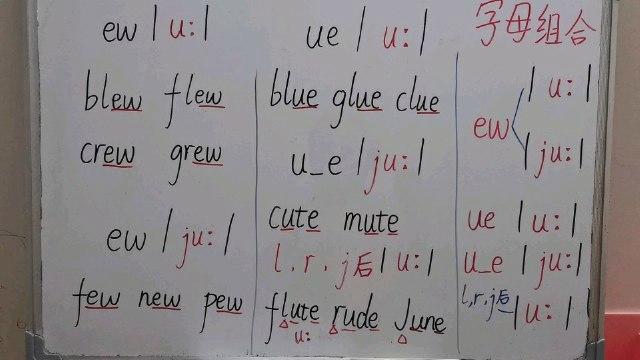 ew | u: |
blew flew
crew grew
ew | ju: |
few new pew
ue | u: |
blue glue clue
u_e | ju: |
cute mute
l, r, j后 | u: |
flute rude June
u:
字母组合
| u: |
ew
| ju: |
ue | u: |
u_e | ju: |
l, r, j后 | u: |